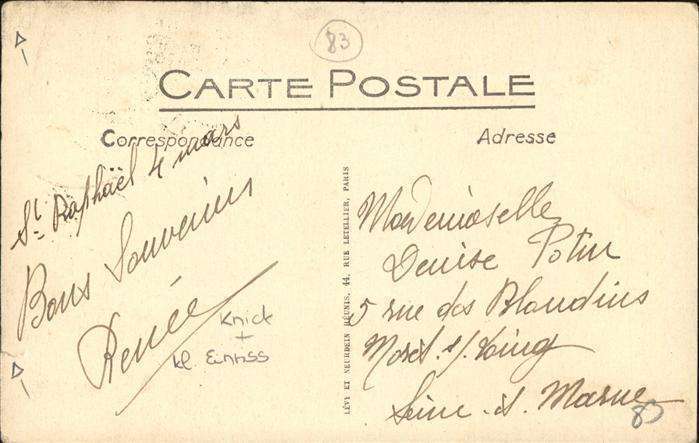 83
CARTE POSTALE
Correspondance
Adresse
St Raphaël 4 mars
Bons Souvenirs
Renée
Knick
+
kl Einriss
LÉVY ET NEURDEIN RÉUNIS, 44, RUE LETELLIER, PARIS
Mademoiselle
Denise Potin
5 rue des Blandins
Moret s/ Loing
Seine et Marne